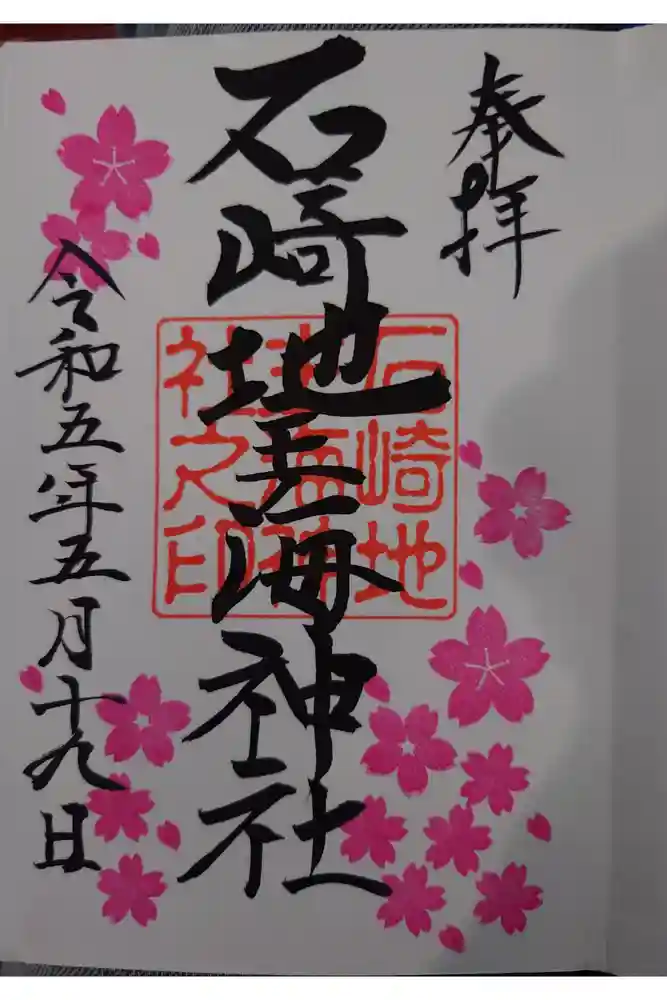 奉拝
石崎地主海神社
石崎地
主海神
社之印
令和五年五月十九日